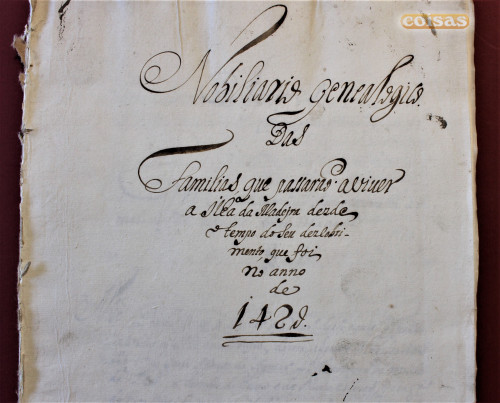 coisas
Nobiliario genealogico
Das
Familias, que passaraõ a viver
a Ilha da Madeyra desde
o tempo do seu descobri-
mento, que foi
no anno
de